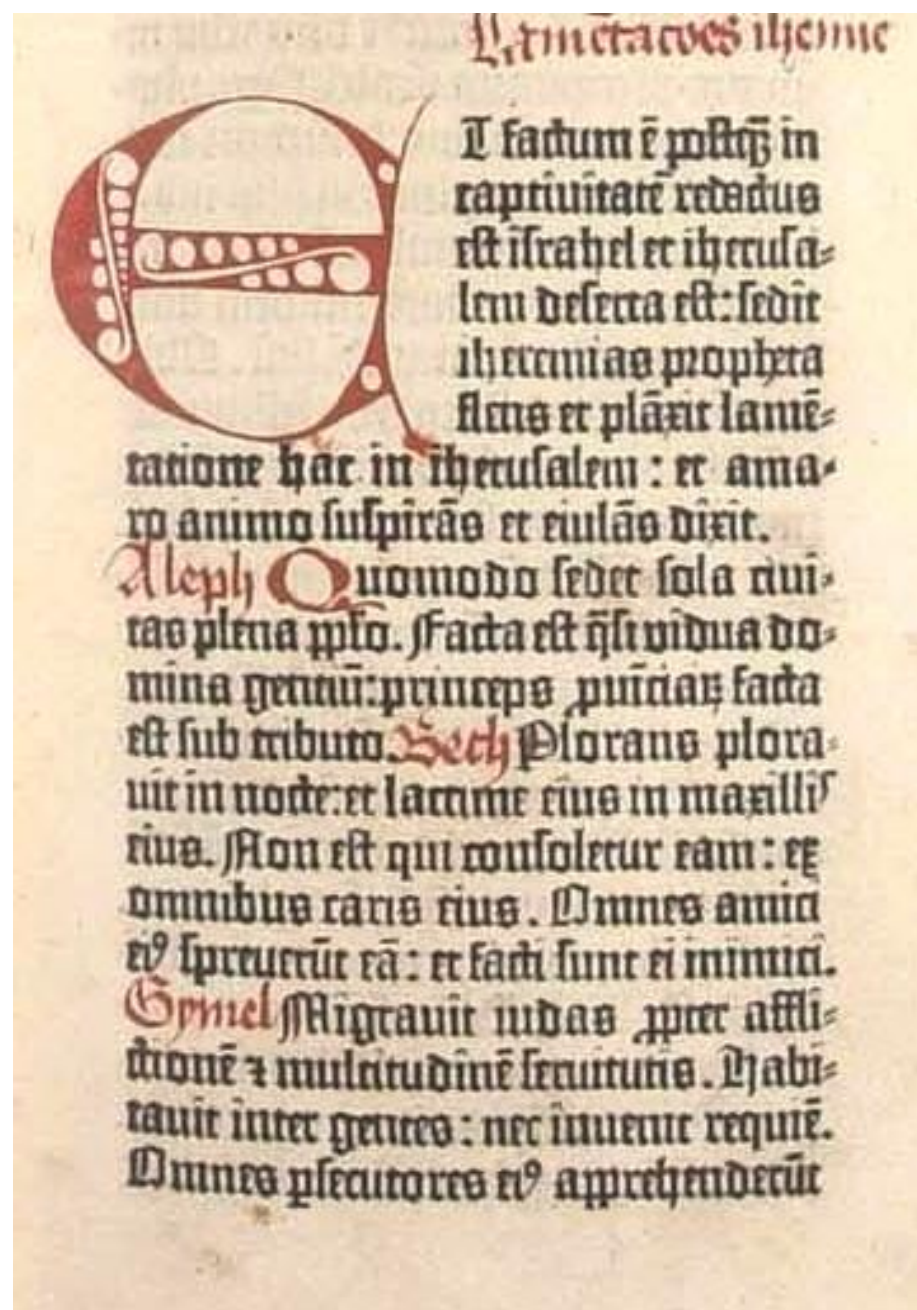 Lamētacōes iheremie
ET factum ē postꝗ̄ in
captiuitatē redactus
est israhel et iherusa⸗
lem deserta est: sedit
iheremias propheta
flens et plāxit lamē⸗
tatione hac in iherusalem : et ama⸗
ro animo suspirās et eiulās dixit.
Aleph Quomodo sedet sola ciui⸗
tas plena ppl̄o. Facta est q̄si vidua do⸗
mina gentiū: princeps ꝓuīciaꝝ facta
est sub tributo. Beth Plorans plora⸗
uit in nocte: et lacrime eius in maxillis
eius. Non est qui consoletur eam : ex
omnibus caris eius . Omnes amici
eiꝰ spreuerūt eā : et facti sunt ei inimici.
Gymel Migrauit iudas ꝓpter affli⸗
ctionē ⁊ multitudinē seruitutis . Habi⸗
tauit inter gentes : nec inuenit requiē.
Omnes ꝑsecutores eiꝰ apprehenderūt